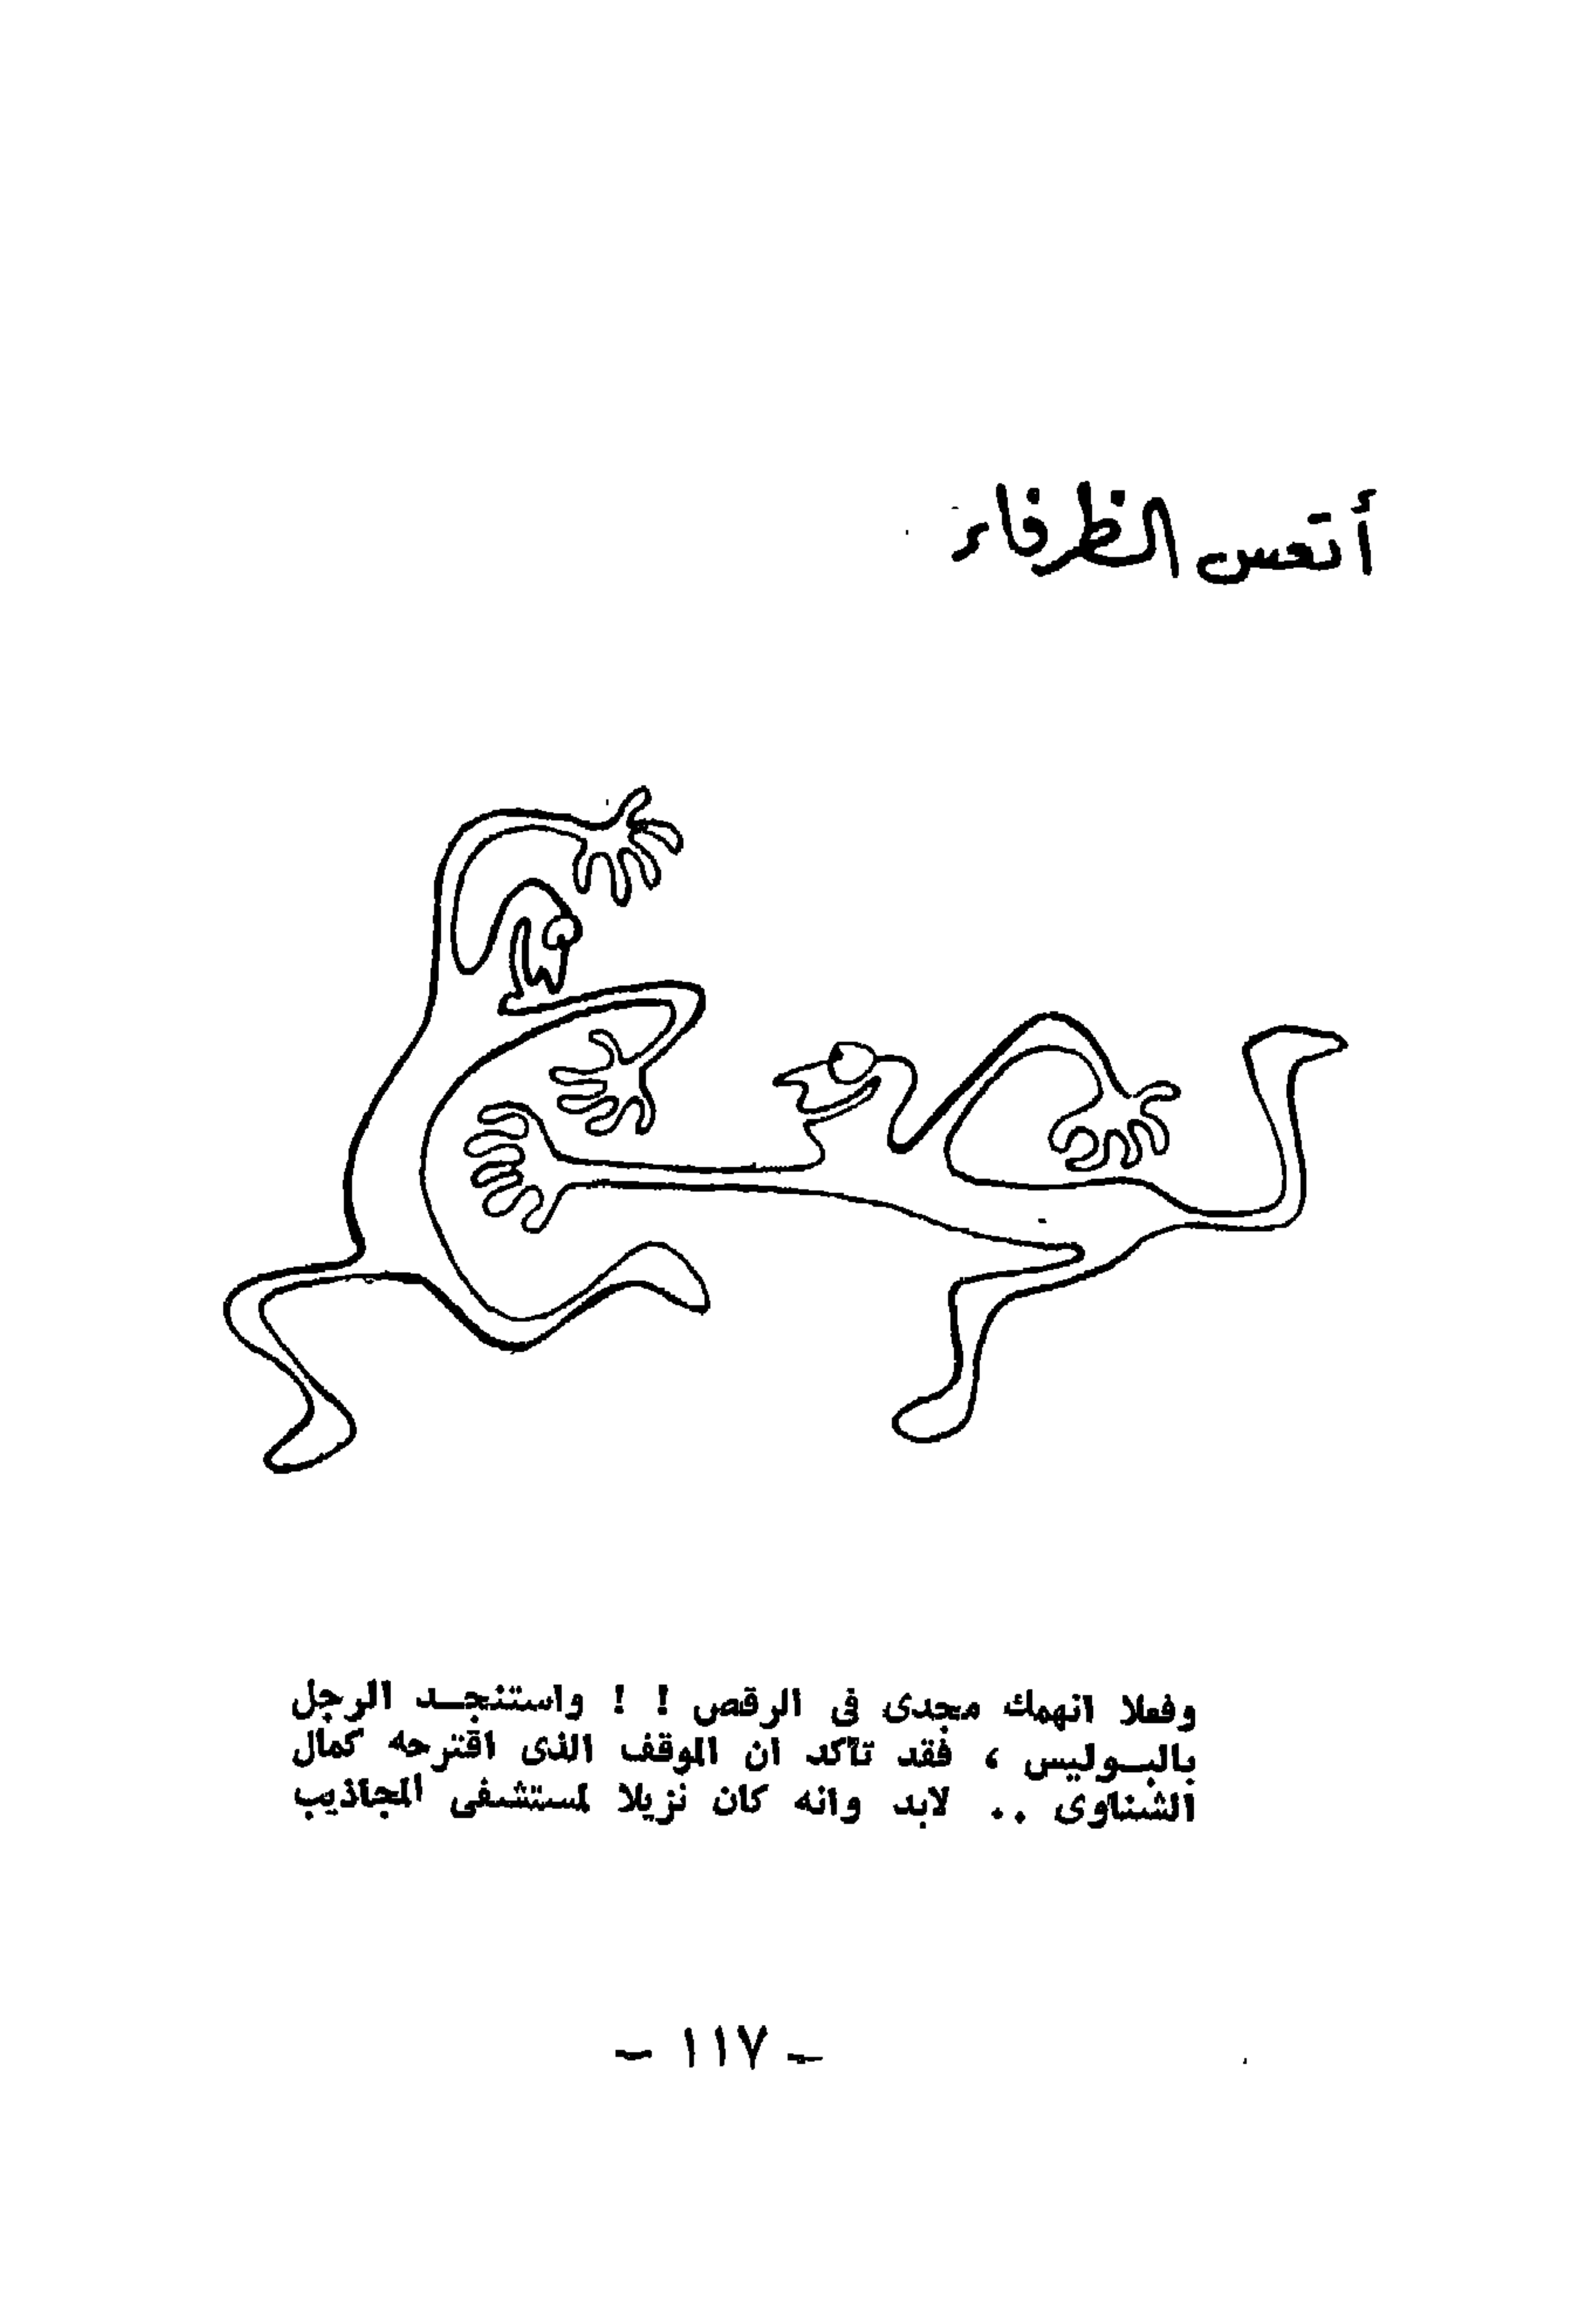 أتعس الظرفاء
وفعلا انهمك مجدى فى الرقص ! ! واستنجـــد الرجل
بالبـــوليس ، فقد تأكد ان الموقف الذى اقترحه كمال
الشناوى .. لابد وانه كان نزيلا لمستشفى المجاذيب
- ١١٧ -